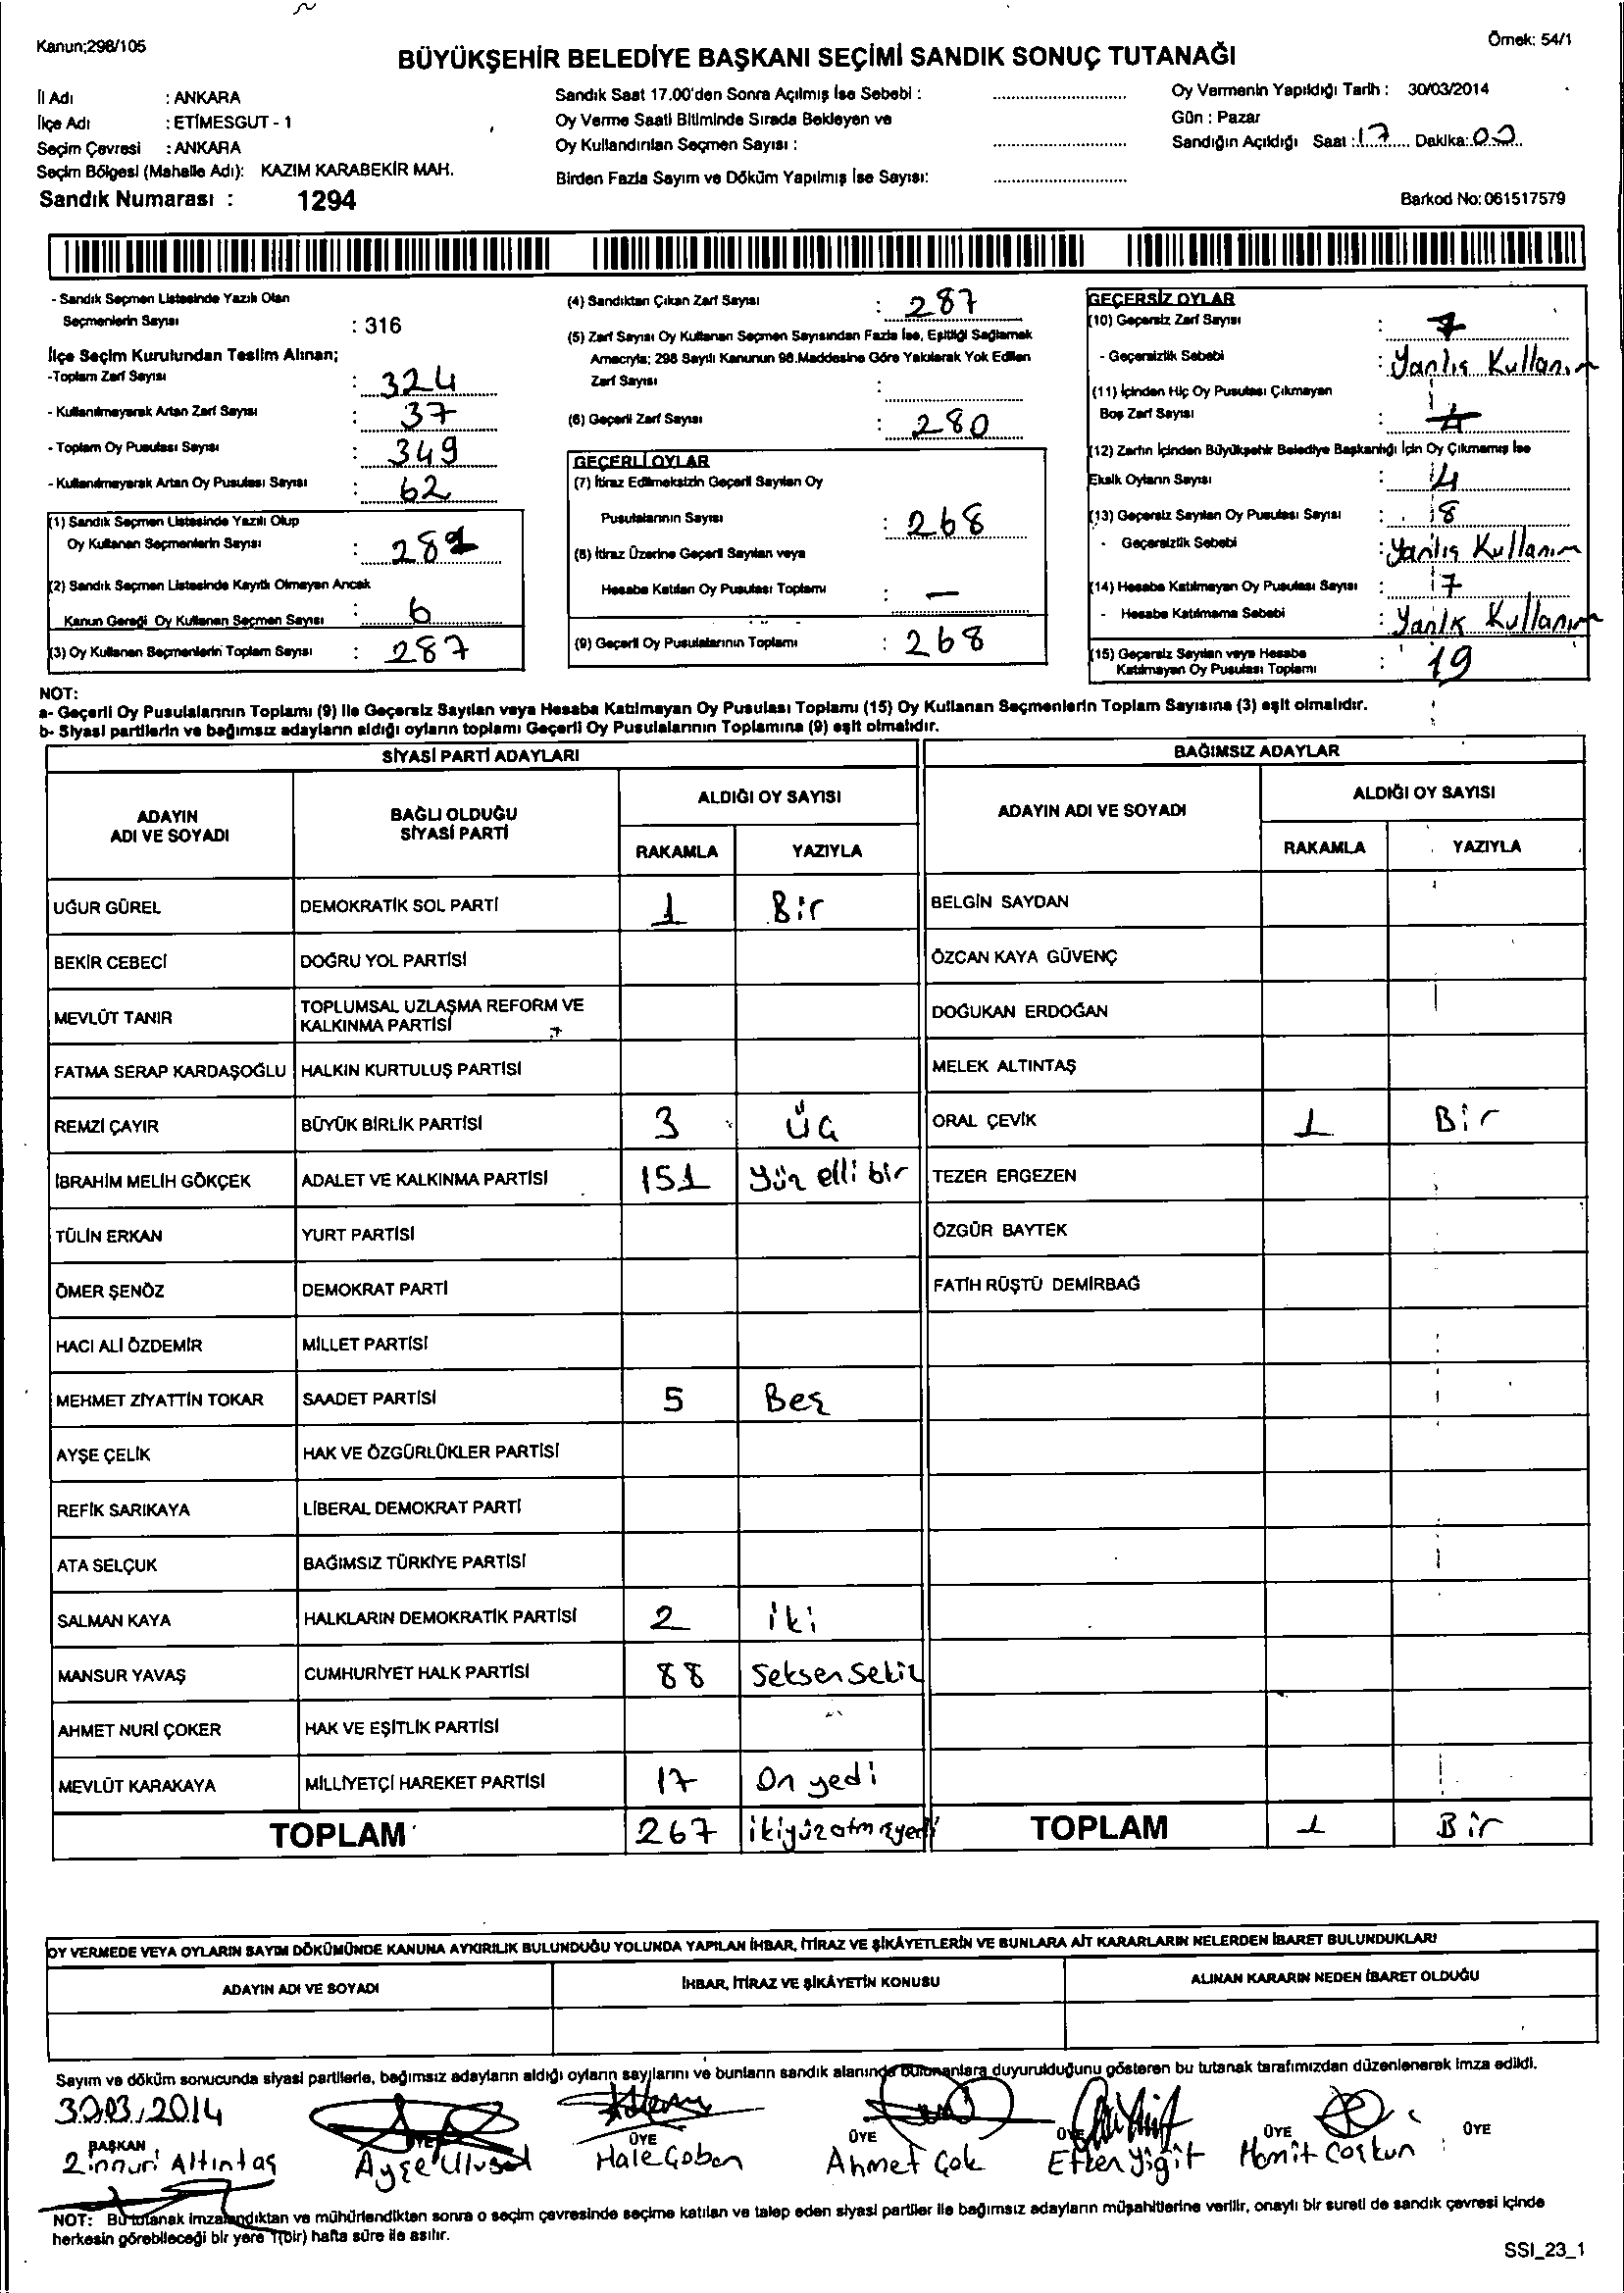 Kanun;298/105
Örnek: 54/1
BÜYÜKŞEHİR BELEDİYE BAŞKANI SEÇİMİ SANDIK SONUÇ TUTANAĞI
İl Adı : ANKARA
İlçe Adı : ETİMESGUT - 1
Seçim Çevresi : ANKARA
Seçim Bölgesi (Mahalle Adı): KAZIM KARABEKİR MAH.
Sandık Numarası : 1294
Sandık Saat 17.00'den Sonra Açılmış İse Sebebi :
Oy Verme Saati Bitiminde Sırada Bekleyen ve
Oy Kullandırılan Seçmen Sayısı :
Birden Fazla Sayım ve Döküm Yapılmış İse Sayısı:
Oy Vermenin Yapıldığı Tarih : 30/03/2014
Gün : Pazar
Sandığın Açıldığı Saat : 17 Dakika: 00
Barkod No: 061517579
- Sandık Seçmen Listesinde Yazılı Olan
Seçmenlerin Sayısı : 316
İlçe Seçim Kurulundan Teslim Alınan;
-Toplam Zarf Sayısı : 324
- Kullanılmayarak Artan Zarf Sayısı : 37
- Toplam Oy Pusulası Sayısı : 349
- Kullanılmayarak Artan Oy Pusulası Sayısı : 62
(1) Sandık Seçmen Listesinde Yazılı Olup
Oy Kullanan Seçmenlerin Sayısı : 281
(2) Sandık Seçmen Listesinde Kayıtlı Olmayan Ancak
Kanun Gereği Oy Kullanan Seçmen Sayısı : 6
(3) Oy Kullanan Seçmenlerin Toplam Sayısı : 287
(4) Sandıktan Çıkan Zarf Sayısı : 287
(5) Zarf Sayısı Oy Kullanan Seçmen Sayısından Fazla İse, Eşitliği Sağlamak
Amacıyla; 298 Sayılı Kanunun 98.Maddesine Göre Yakılarak Yok Edilen
Zarf Sayısı :
(6) Geçerli Zarf Sayısı : 280
GEÇERLİ OYLAR
(7) İtiraz Edilmeksizin Geçerli Sayılan Oy
Pusulalarının Sayısı : 268
(8) İtiraz Üzerine Geçerli Sayılan veya
Hesaba Katılan Oy Pusulası Toplamı : -
(9) Geçerli Oy Pusulalarının Toplamı : 268
GEÇERSİZ OYLAR
(10) Geçersiz Zarf Sayısı : 7
- Geçersizlik Sebebi : Yanlış Kullanım
(11) İçinden Hiç Oy Pusulası Çıkmayan
Boş Zarf Sayısı :
(12) Zarfın İçinden Büyükşehir Belediye Başkanlığı İçin Oy Çıkmamış İse
Eksik Oyların Sayısı : 4
(13) Geçersiz Sayılan Oy Pusulası Sayısı : 8
- Geçersizlik Sebebi : Yanlış Kullanım
(14) Hesaba Katılmayan Oy Pusulası Sayısı : 7
- Hesaba Katılmama Sebebi : Yanlk Kullanım
(15) Geçersiz Sayılan veya Hesaba
Katılmayan Oy Pusulası Toplamı : 19
NOT:
a- Geçerli Oy Pusulalarının Toplamı (9) ile Geçersiz Sayılan veya Hesaba Katılmayan Oy Pusulası Toplamı (15) Oy Kullanan Seçmenlerin Toplam Sayısına (3) eşit olmalıdır.
b- Siyasi partilerin ve bağımsız adayların aldığı oyların toplamı Geçerli Oy Pusulalarının Toplamına (9) eşit olmalıdır.
SİYASİ PARTİ ADAYLARI
BAĞIMSIZ ADAYLAR
ADAYIN ADI VE SOYADI
BAĞLI OLDUĞU SİYASİ PARTİ
ALDIĞI OY SAYISI
RAKAMLA YAZIYLA
ADAYIN ADI VE SOYADI
ALDIĞI OY SAYISI
RAKAMLA YAZIYLA
UĞUR GÜREL DEMOKRATİK SOL PARTİ 1 Bir BELGİN SAYDAN
BEKİR CEBECİ DOĞRU YOL PARTİSİ ÖZCAN KAYA GÜVENÇ
MEVLÜT TANIR TOPLUMSAL UZLAŞMA REFORM VE KALKINMA PARTİSİ DOĞUKAN ERDOĞAN
FATMA SERAP KARDAŞOĞLU HALKIN KURTULUŞ PARTİSİ MELEK ALTINTAŞ
REMZİ ÇAYIR BÜYÜK BİRLİK PARTİSİ 3 Üç ORAL ÇEVİK 1 Bir
İBRAHİM MELİH GÖKÇEK ADALET VE KALKINMA PARTİSİ 151 Yüz elli bir TEZER ERGEZEN
TÜLİN ERKAN YURT PARTİSİ ÖZGÜR BAYTEK
ÖMER ŞENÖZ DEMOKRAT PARTİ FATİH RÜŞTÜ DEMİRBAĞ
HACI ALİ ÖZDEMİR MİLLET PARTİSİ
MEHMET ZİYATTİN TOKAR SAADET PARTİSİ 5 Beş
AYŞE ÇELİK HAK VE ÖZGÜRLÜKLER PARTİSİ
REFİK SARIKAYA LİBERAL DEMOKRAT PARTİ
ATA SELÇUK BAĞIMSIZ TÜRKİYE PARTİSİ
SALMAN KAYA HALKLARIN DEMOKRATİK PARTİSİ 2 iki
MANSUR YAVAŞ CUMHURİYET HALK PARTİSİ 88 Seksen Sekiz
AHMET NURİ ÇOKER HAK VE EŞİTLİK PARTİSİ
MEVLÜT KARAKAYA MİLLİYETÇİ HAREKET PARTİSİ 17 On yedi
TOPLAM 267 ikiyüzatmışyedi TOPLAM 1 Bir
OY VERMEDE VEYA OYLARIN SAYIM DÖKÜMÜNDE KANUNA AYKIRILIK BULUNDUĞU YOLUNDA YAPILAN İHBAR, İTİRAZ VE ŞİKÂYETLERİN VE BUNLARA AİT KARARLARIN NELERDEN İBARET BULUNDUKLARI
ADAYIN ADI VE SOYADI İHBAR, İTİRAZ VE ŞİKÂYETİN KONUSU ALINAN KARARIN NEDEN İBARET OLDUĞU
Sayım ve döküm sonucunda siyasi partilerle, bağımsız adayların aldığı oyların sayılarını ve bunların sandık alanında bulunanlara duyurulduğunu gösteren bu tutanak tarafımızdan düzenlenerek imza edildi.
30.03.2014
BAŞKAN ÜYE ÜYE ÜYE ÜYE ÜYE ÜYE
Zinnuri Altıntaş Ayşe Ulusal Hale Çoban Ahmet Çok Efken Yiğit Hamit Coşkun
NOT: Bu tutanak imzalandıktan ve mühürlendikten sonra o seçim çevresinde seçime katılan ve talep eden siyasi partiler ile bağımsız adayların müşahitlerine verilir, onaylı bir sureti de sandık çevresi içinde
herkesin görebileceği bir yere 1(bir) hafta süre ile asılır.
SSI_23_1